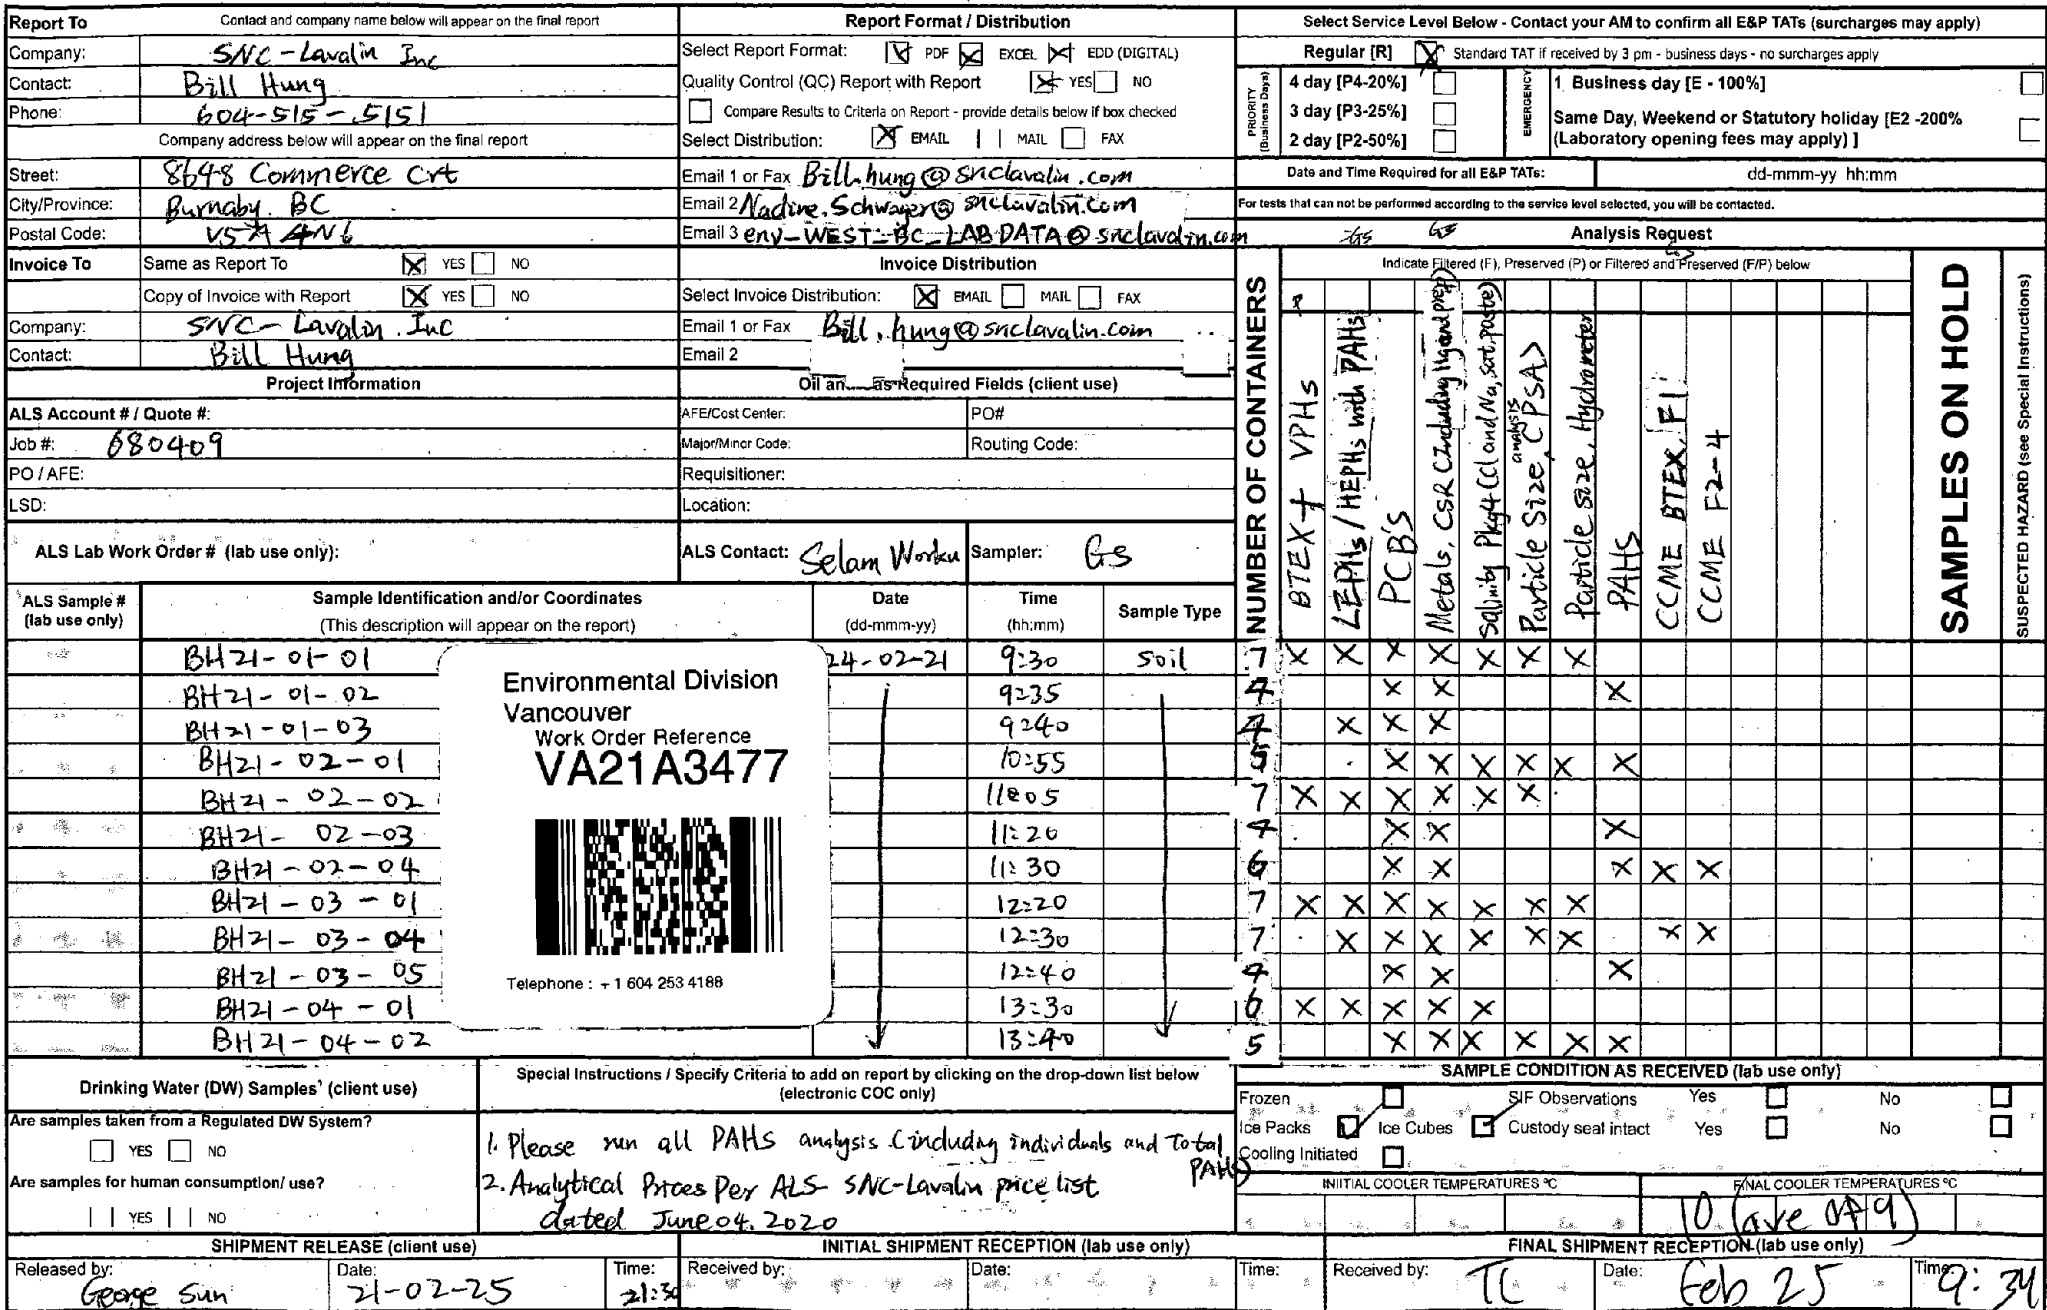 Report To Contact and company name below will appear on the final report
Company: SNC-Lavalin Inc
Contact: Bill Hung
Phone: 604-515-5151
Company address below will appear on the final report
Street: 8648 Commerce Crt
City/Province: Burnaby. BC
Postal Code: V5A 4N6
Invoice To Same as Report To YES NO
Copy of Invoice with Report YES NO
Company: SNC-Lavalin. Inc
Contact: Bill Hung
Project Information
ALS Account # / Quote #:
Job #: 680409
PO / AFE:
LSD:
ALS Lab Work Order # (lab use only):
Report Format / Distribution
Select Report Format: PDF EXCEL EDD (DIGITAL)
Quality Control (QC) Report with Report YES NO
Compare Results to Criteria on Report - provide details below if box checked
Select Distribution: EMAIL MAIL FAX
Email 1 or Fax Bill.hung@snclavalin.com
Email 2 Nadine.Schwager@snclavalin.com
Email 3 env-WEST-BC-LABDATA@snclavalin.com
Invoice Distribution
Select Invoice Distribution: EMAIL MAIL FAX
Email 1 or Fax Bill.hung@snclavalin.com
Email 2
Oil an as Required Fields (client use)
AFE/Cost Center: PO#
Major/Minor Code: Routing Code:
Requisitioner:
Location:
ALS Contact: Selam Worku Sampler: GS
Select Service Level Below - Contact your AM to confirm all E&P TATs (surcharges may apply)
Regular [R] Standard TAT if received by 3 pm - business days - no surcharges apply
PRIORITY (Business Days)
4 day [P4-20%]
3 day [P3-25%]
2 day [P2-50%]
EMERGENCY
1 Business day [E - 100%]
Same Day, Weekend or Statutory holiday [E2 -200%
(Laboratory opening fees may apply) ]
Date and Time Required for all E&P TATs: dd-mmm-yy hh:mm
For tests that can not be performed according to the service level selected, you will be contacted.
GS GS Analysis Request
Indicate Filtered (F), Preserved (P) or Filtered and Preserved (F/P) below
NUMBER OF CONTAINERS
BTEX + VPHs
LEPHs / HEPHs with PAHs
PCBs
Metals, CSR (Including Hg and prep)
Salinity Pkg4 (Cl and Na, sat. paste)
Particle Size analysis (PSA)
Particle size, Hydrometer
PAHs
CCME BTEX, F1
CCME F2-4
SAMPLES ON HOLD
SUSPECTED HAZARD (see Special Instructions)
ALS Sample # (lab use only) Sample Identification and/or Coordinates (This description will appear on the report) Date (dd-mmm-yy) Time (hh:mm) Sample Type
BH21-01-01 24-02-21 9:30 soil 7 X X X X X X X
BH21-01-02 9:35 4 X X X
BH21-01-03 9:40 4 X X X
BH21-02-01 10:55 5 X X X X X X
BH21-02-02 11:05 7 X X X X X X
BH21-02-03 11:20 4 X X X
BH21-02-04 11:30 6 X X X X X
BH21-03-01 12:20 7 X X X X X X X
BH21-03-04 12:30 7 X X X X X X X X
BH21-03-05 12:40 4 X X X
BH21-04-01 13:30 6 X X X X X
BH21-04-02 13:40 5 X X X X X X
Environmental Division
Vancouver
Work Order Reference
VA21A3477
Telephone : +1 604 253 4188
Drinking Water (DW) Samples¹ (client use)
Are samples taken from a Regulated DW System?
YES NO
Are samples for human consumption/ use?
YES NO
Special Instructions / Specify Criteria to add on report by clicking on the drop-down list below
(electronic COC only)
1. Please run all PAHs analysis (including individuals and Total PAHs)
2. Analytical Prices Per ALS- SNC-Lavalin price list
dated June 04. 2020
SAMPLE CONDITION AS RECEIVED (lab use only)
Frozen SIF Observations Yes No
Ice Packs Ice Cubes Custody seal intact Yes No
Cooling Initiated
INIITIAL COOLER TEMPERATURES ºC FINAL COOLER TEMPERATURES ºC
10 (ave of 9)
SHIPMENT RELEASE (client use) INITIAL SHIPMENT RECEPTION (lab use only) FINAL SHIPMENT RECEPTION (lab use only)
Released by: George Sun Date: 21-02-25 Time: 21:30 Received by: Date: Time: Received by: TC Date: Feb 25 Time: 9:34